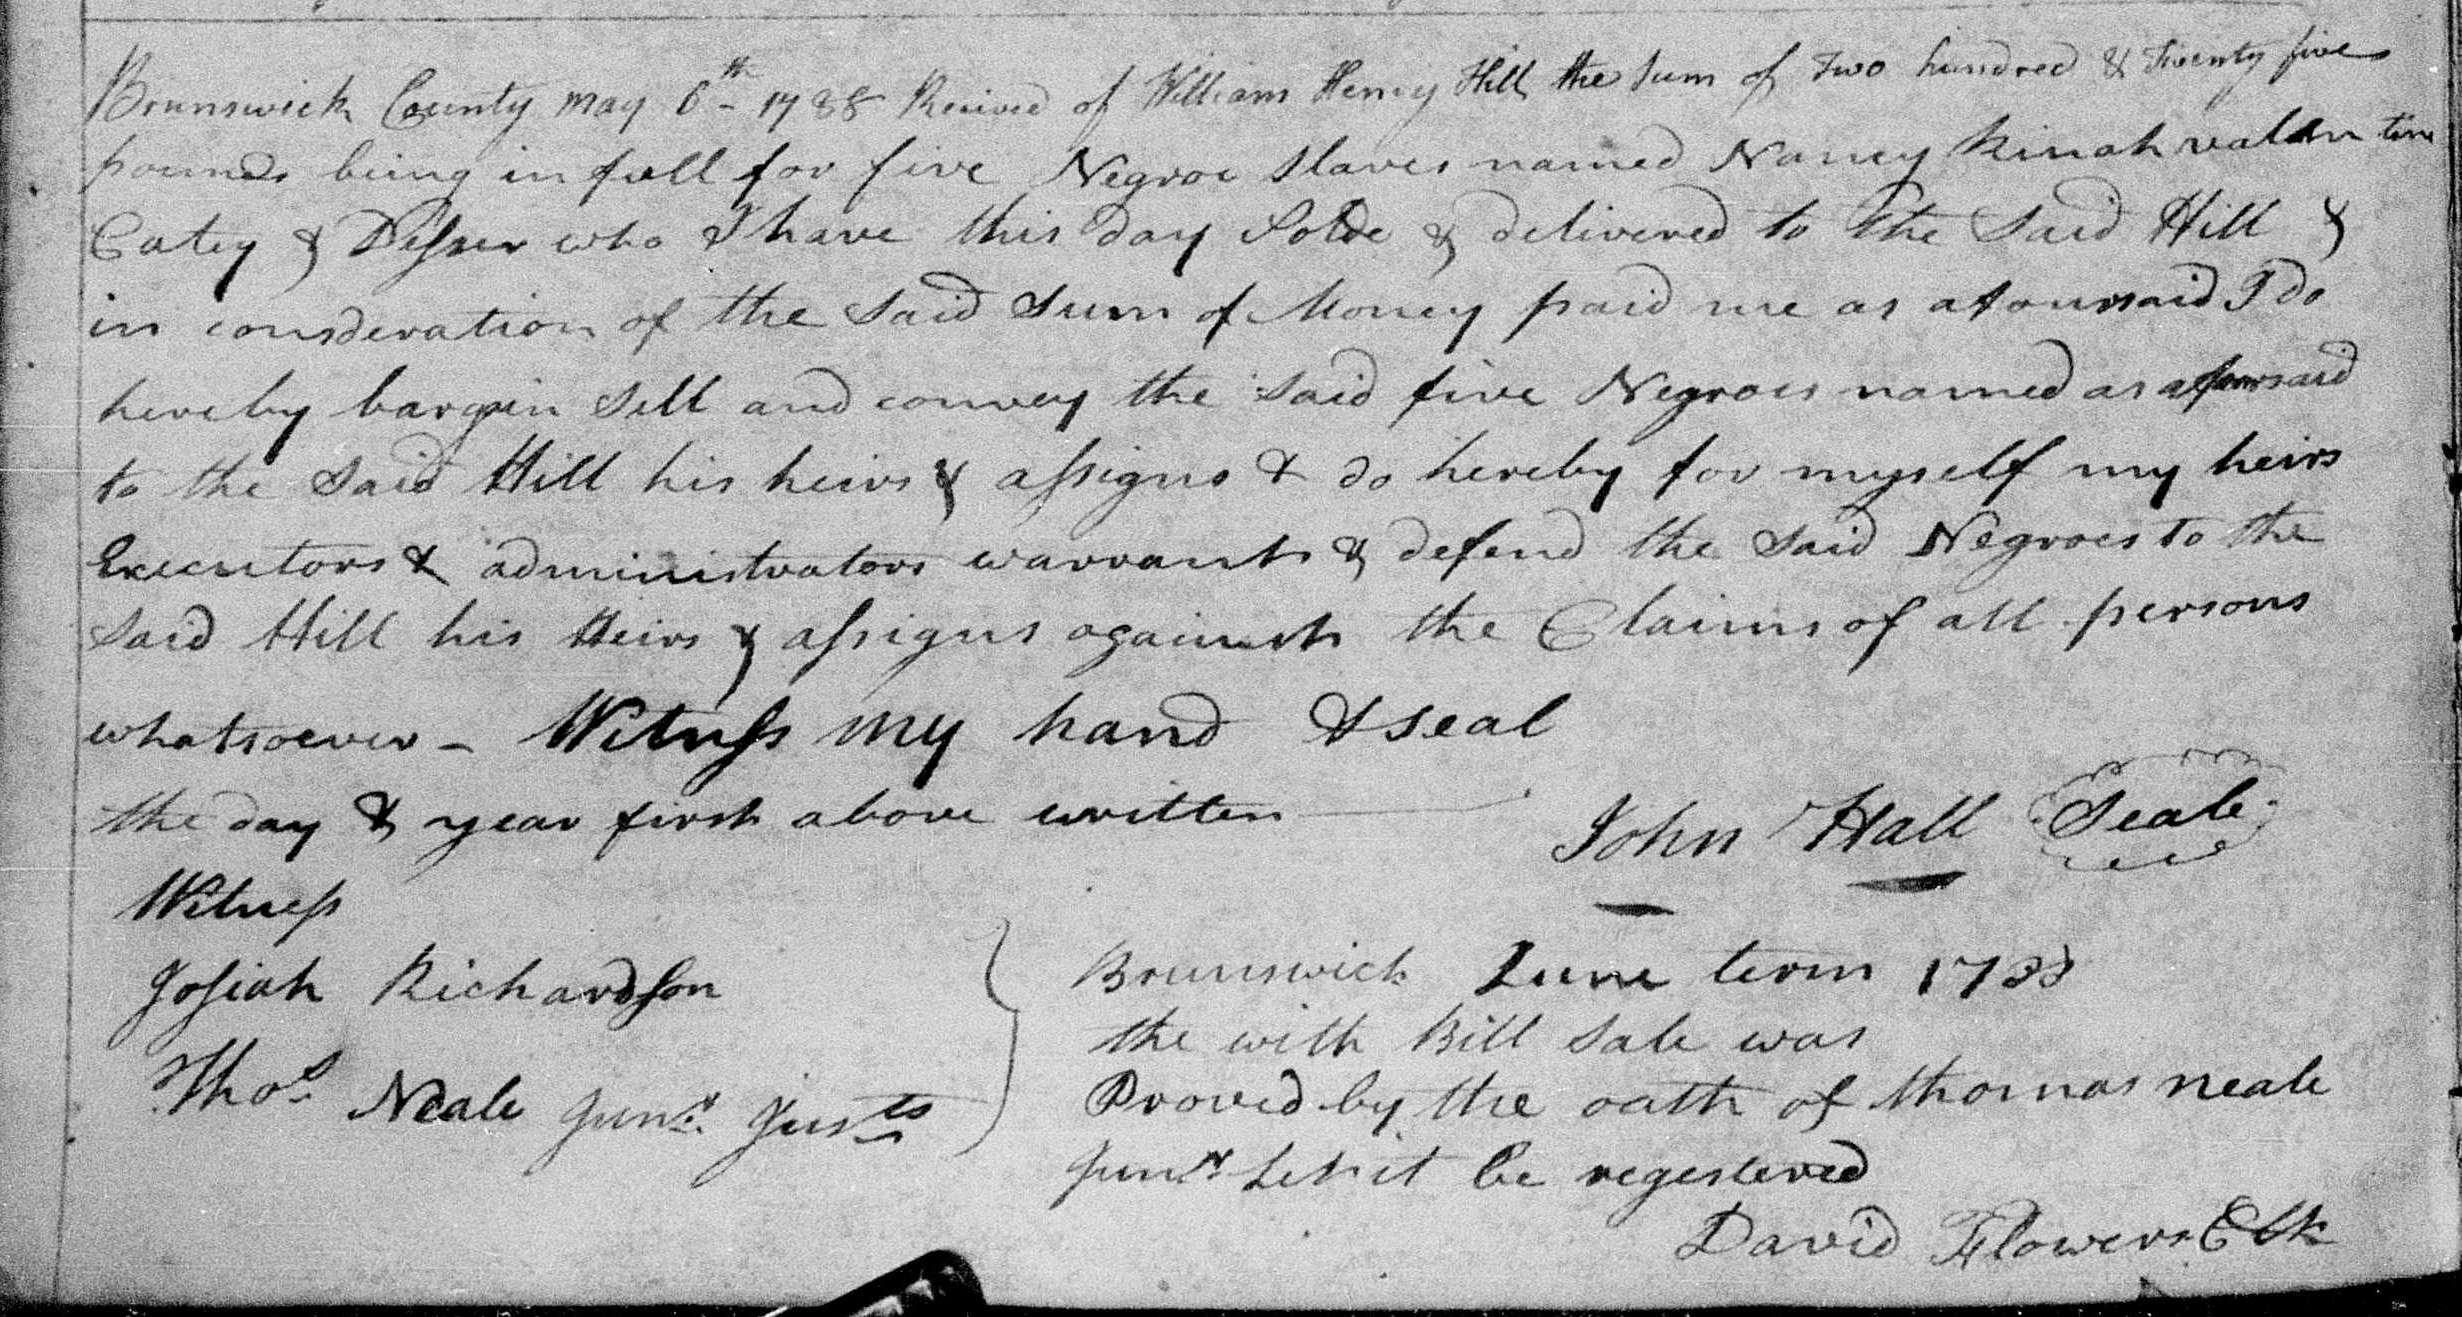 Brunswick County May 6th - 1788 Recived of William Henry Hill the Sum of Two hundred & Twenty five
pounds being in full for five Negroe Slaves named Nancy Kinah valen tine
Catey & who I have this day Solde & delivered to the Said Hill &
in consderation of the Said Sum of Money paid me as I do
hereby bargin Sell and convey the Said five Negroes named as aforesaid
to the Said Hill his heirs & assigns & do hereby for myself my heirs
Executors & administrators warrant & defend the Said Negroes to the
Said Hill his Heirs & assigns against the Claims of all persons
whatsoever - Witness my hand & seal
the day & year first above written
John Hall Seale
Witness
Josiah Richardson
Thos. Neale Junr. Justs
Brunswick June term 1788
the with Bill Sale was
Proved by the oath of thomas neale
Junr Let it be regestered
David Flowers Clk